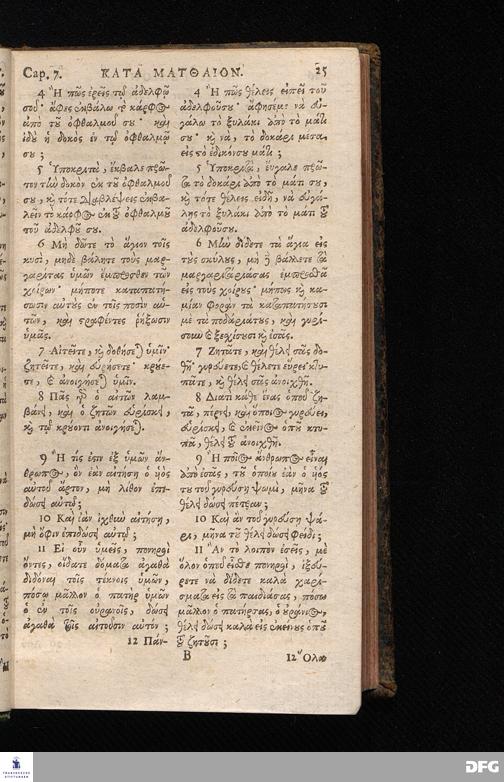 Cap. 7. ΚΑΤΑ ΜΑΤΘΑΙΟΝ. 25
4 Ἢ πῶς ἐρεῖς τῷ ἀδελφῷ
σου· ἄφες ἐκβάλω τὸ κάρφος
ἀπὸ τοῦ ὀφθαλμοῦ σου· καὶ
ἰδοὺ ἡ δοκὸς ἐν τῷ ὀφθαλμῷ
σου;
5 Ὑποκριτὰ, ἔκβαλε πρῶ-
τον τὴν δοκὸν ἐκ τοῦ ὀφθαλμοῦ
σου, καὶ τότε διαβλέψεις ἐκβα-
λεῖν τὸ κάρφος ἐκ τοῦ ὀφθαλμοῦ
τοῦ ἀδελφοῦ σου.
6 Μὴ δῶτε τὸ ἅγιον τοῖς
κυσὶ, μηδὲ βάλητε τοὺς μαρ-
γαρίτας ὑμῶν ἔμπροσθεν τῶν
χοίρων· μήποτε καταπατή-
σωσιν αὐτοὺς ἐν τοῖς ποσὶν αὑ-
τῶν, καὶ στραφέντες ῥήξωσιν
ὑμᾶς.
7 Αἰτεῖτε, καὶ δοθήσεται ὑμῖν·
ζητεῖτε, καὶ εὑρήσετε· κρούε-
τε, καὶ ἀνοιγήσεται ὑμῖν.
8 Πᾶς γὰρ ὁ αἰτῶν λαμ-
βάνει, καὶ ὁ ζητῶν εὑρίσκει,
καὶ τῷ κρούοντι ἀνοιγήσεται.
9 Ἢ τίς ἐστιν ἐξ ὑμῶν ἄν-
θρωπος, ὃν ἐὰν αἰτήσῃ ὁ υἱὸς
αὐτοῦ ἄρτον, μὴ λίθον ἐπι-
δώσει αὐτῷ;
10 Καὶ ἐὰν ἰχθὺν αἰτήσῃ,
μὴ ὄφιν ἐπιδώσει αὐτῷ;
11 Εἰ οὖν ὑμεῖς, πονηροὶ
ὄντες, οἴδατε δόματα ἀγαθὰ
διδόναι τοῖς τέκνοις ὑμῶν,
πόσῳ μᾶλλον ὁ πατὴρ ὑμῶν
ὁ ἐν τοῖς οὐρανοῖς, δώσει
ἀγαθὰ τοῖς αἰτοῦσιν αὐτόν;
12 Πάν-
4 Ἢ πῶς θέλεις εἰπεῖ τοῦ
ἀδελφοῦσου· ἀφησέμε νὰ εὐ-
γάλω τὸ ξυλάκι ἀπὸ τὸ μάτι
σου· καὶ νὰ, τὸ δοκάρι μέσα
εἰς τὸ ἐδικόνσου μάτι;
5 Ὑποκριτὰ, εὔγαλε πρῶ-
τα τὸ δοκάρι ἀπὸ τὸ μάτι σου,
καὶ τότε θέλεις εἰδῇ, νὰ εὐγά-
λης τὸ ξυλάκι ἀπὸ τὸ μάτι τοῦ
ἀδελφοῦσου.
6 Μὴν δίδετε τὰ ἅγια εἰς
τοὺς σκύλους, μὴ δὲ βάλλετε τὰ
μαργαριτάριάσας ἐμπροστὰ
εἰς τοὺς χοίρους· μήπως καὶ κα-
μίαν φορὰν τὰ καταπατήσουσι
μὲ τὰ ποδάριάτους, καὶ γυρί-
σουν καὶ ξεσχίσουσι καὶ ἐσᾶς.
7 Ζητᾶτε, καὶ θέλει σᾶς δο-
θῆ· γυρεύετε, καὶ θέλετε εὕρει· κτυ-
πᾶτε, καὶ θέλει σᾶς ἀνοιχθῆ.
8 Διατὶ κάθε ἕνας ὁποῦ ζη-
τᾶ, πέρνει, καὶ ὁποῖος γυρεύει,
εὑρίσκει, καὶ ἐκεῖνος ὁποῦ κτυ-
πᾶ, θέλει τοῦ ἀνοιχθῆ.
9 Ἢ ποῖος ἄνθρωπος εἶναι
ἀπὸ ἐσᾶς, τοῦ ὁποίου ἐὰν ὁ υἱός
του τοῦ γυρεύσῃ ψωμὶ, μήνα τοῦ
θέλει δώσει πέτραν;
10 Καὶ ἂν τοῦ γυρεύσῃ ψά-
ρι, μήνα τοῦ θέλει δώσει φείδι;
11 Ἂν τὸ λοιπὸν ἐσεῖς, μὲ
ὅλον ὁποῦ εἶσθε πονηροὶ, ἐξεύ-
ρετε νὰ δίδετε καλὰ χαρί-
σματα εἰς τὰ παιδιάσας, πόσῳ
μᾶλλον ὁ πατήρσας, ὁ οὐράνιος,
θέλει δώσει καλὰ εἰς ἐκείνους ὁποῦ
τοῦ ζητοῦσι;
B 12 Ὅλα
DFG